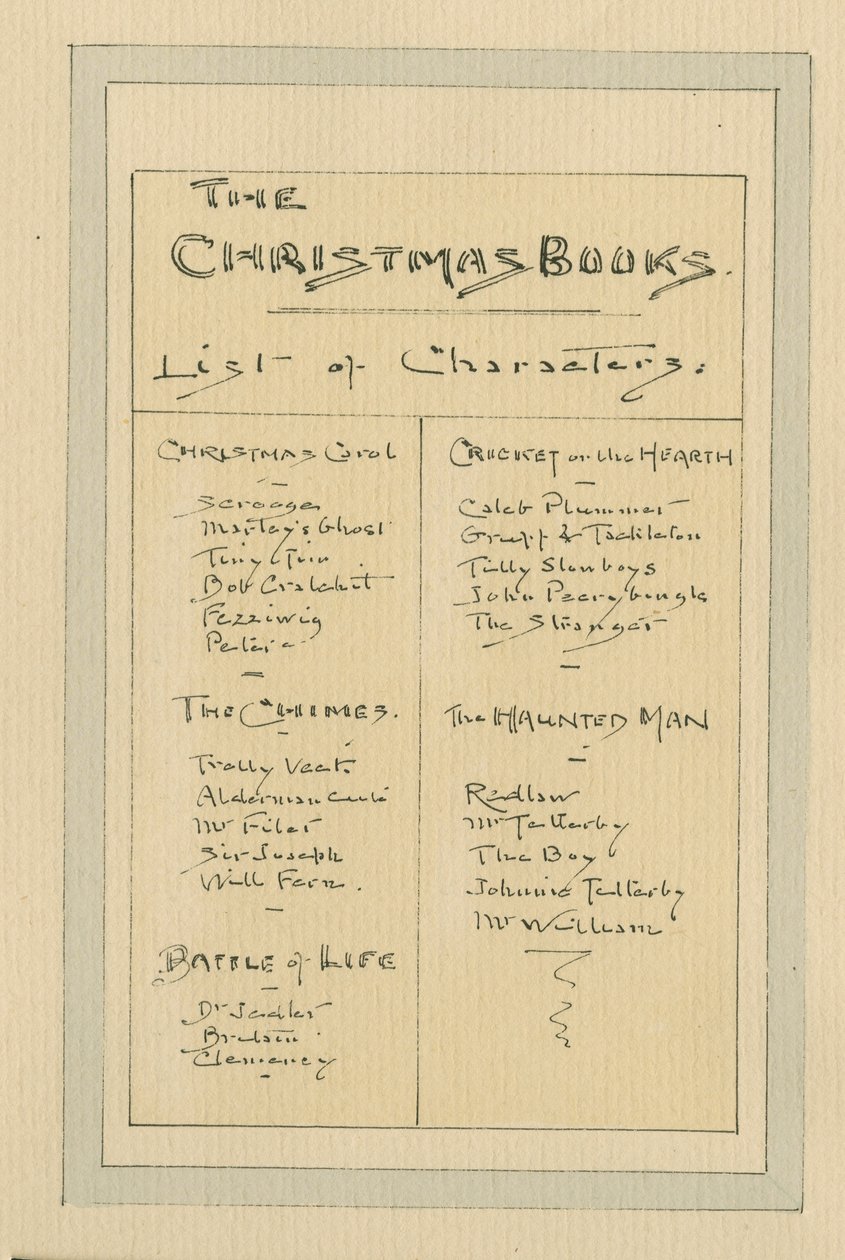 THE
CHRISTMAS BOOKS.
List of Characters:
CHRISTMAS Carol
Scrooge
Marley's Ghost
Tiny Tim
Bob Cratchit
Fezziwig
Peter
THE CHIMES.
Trotty Veck.
Alderman Cute
Mr Filer
Sir Joseph
Will Fern.
BATTLE of LIFE
Dr Jedler
Britain
Clemency
CRICKET on the HEARTH
Caleb Plummer
Grupp & Tackleton
Tilly Slowboys
John Peerybingle
The Stranger
The HAUNTED MAN
Redlaw
Mr Tetterby
The Boy
Johnnie Tetterby
Mr William